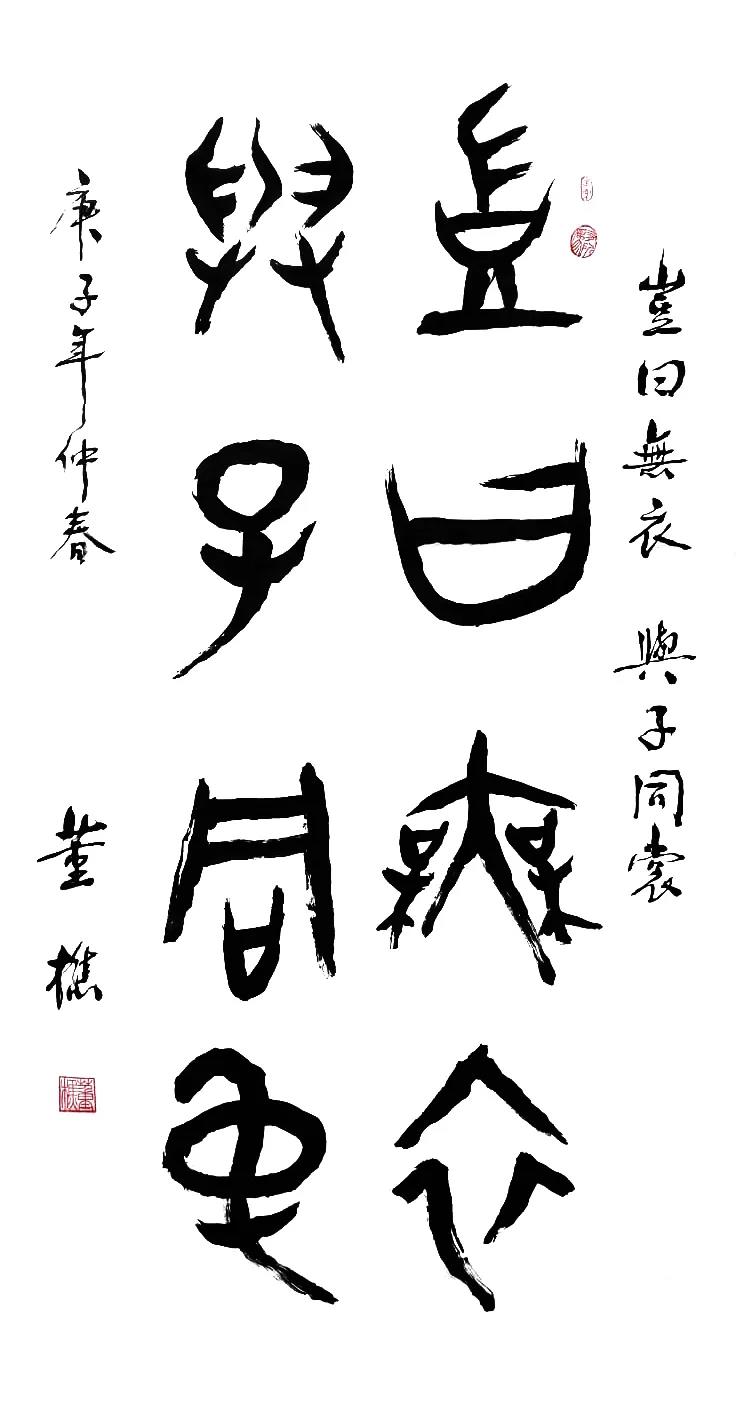 豈曰無衣 與子同裳
豈曰無衣
與子同裳
庚子年仲春 董樵